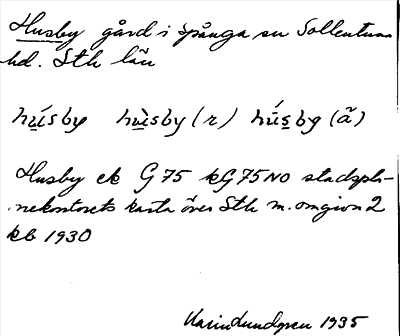 Husby gård i Spånga sn Sollentuna
hd. Sth län
húsby hùsby (r) húsby (ã)
Husby ek G 75 kG 75 NO stadspla-
nekontorets karta över Sth m. omgivn 2
kb 1930
Karin Lundgren 1935